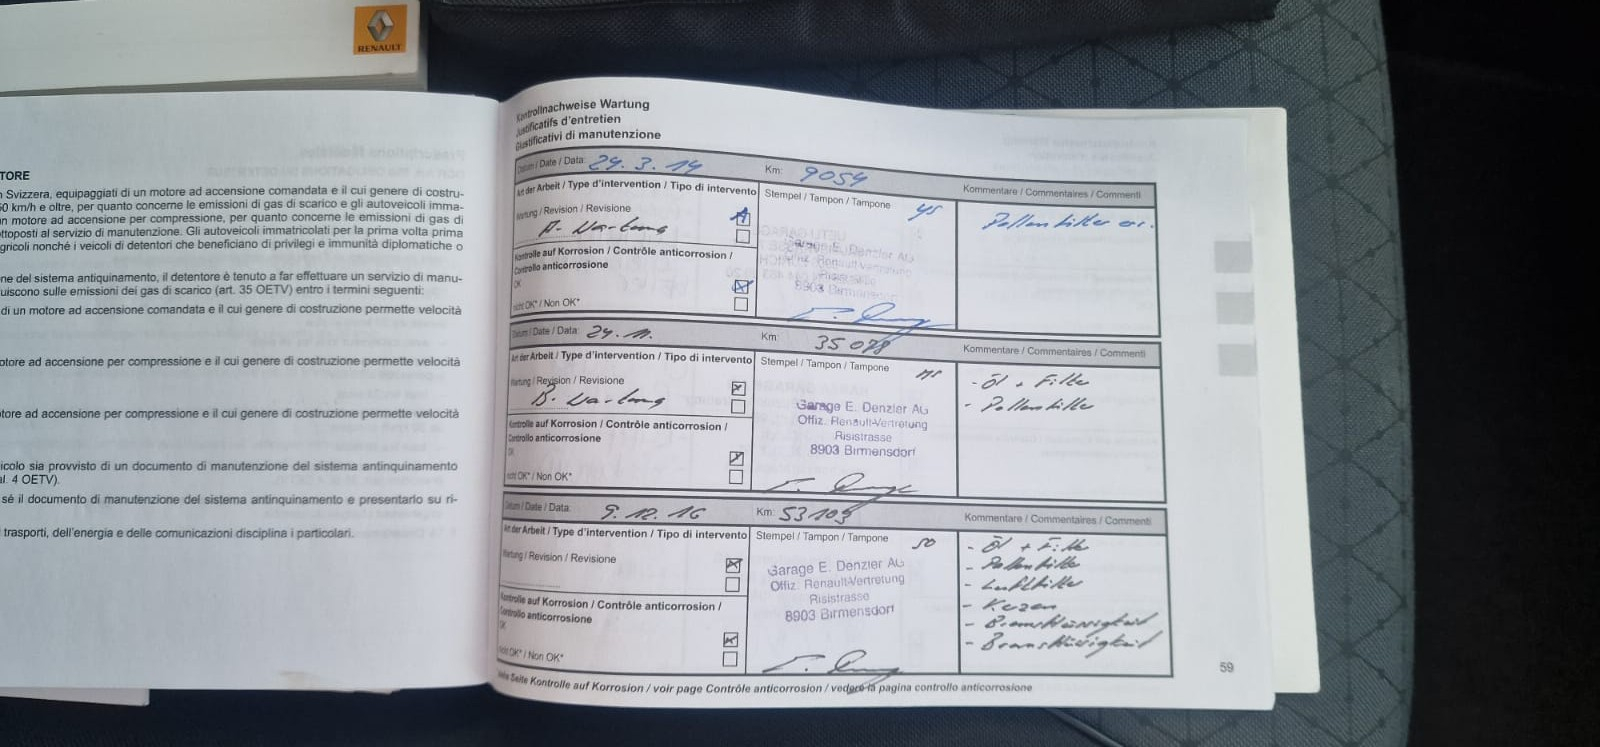 RENAULT
TORE
Svizzera, equipaggiati di un motore ad accensione comandata e il cui genere di costru-
km/h e oltre, per quanto concerne le emissioni di gas di scarico e gli autoveicoli imma-
n motore ad accensione per compressione, per quanto concerne le emissioni di gas di
ttoposti al servizio di manutenzione. Gli autoveicoli immatricolati per la prima volta prima
gricoli nonché i veicoli di detentori che beneficiano di privilegi e immunità diplomatiche o
ne del sistema antiquinamento, il detentore è tenuto a far effettuare un servizio di manu-
uiscono sulle emissioni dei gas di scarico (art. 35 OETV) entro i termini seguenti:
di un motore ad accensione comandata e il cui genere di costruzione permette velocità
otore ad accensione per compressione e il cui genere di costruzione permette velocità
otore ad accensione per compressione e il cui genere di costruzione permette velocità
icolo sia provvisto di un documento di manutenzione del sistema antinquinamento
al. 4 OETV).
sé il documento di manutenzione del sistema antinquinamento e presentarlo su ri-
trasporti, dell'energia e delle comunicazioni disciplina i particolari.
Kontrollnachweise Wartung
Justificatifs d'entretien
Giustificativi di manutenzione
Datum / Date / Data: 29.3.14 Km: 9054 Kommentare / Commentaires / Commenti
Art der Arbeit / Type d'intervention / Tipo di intervento Stempel / Tampon / Tampone
Wartung / Revision / Revisione A
A. Wartung
Pollenfilter er.
Kontrolle auf Korrosion / Contrôle anticorrosion /
Controllo anticorrosione
OK
nicht OK* / Non OK*
Garage E. Denzler AG
Offiz. Renault-Vertretung
Risistrasse
8903 Birmensdorf
Datum / Date / Data: 24.11. Km: 35078 Kommentare / Commentaires / Commenti
Art der Arbeit / Type d'intervention / Tipo di intervento Stempel / Tampon / Tampone
Wartung / Revision / Revisione
B. Wartung
- Öl + Filter
- Pollenfilter
Kontrolle auf Korrosion / Contrôle anticorrosion /
Controllo anticorrosione
OK
nicht OK* / Non OK*
Garage E. Denzler AG
Offiz. Renault-Vertretung
Risistrasse
8903 Birmensdorf
Datum / Date / Data: 9.12.16 Km: 53109 Kommentare / Commentaires / Commenti
Art der Arbeit / Type d'intervention / Tipo di intervento Stempel / Tampon / Tampone
Wartung / Revision / Revisione
Kontrolle auf Korrosion / Contrôle anticorrosion /
Controllo anticorrosione
OK
nicht OK* / Non OK*
Garage E. Denzler AG
Offiz. Renault-Vertretung
Risistrasse
8903 Birmensdorf
- Öl + Filter
- Pollenfilter
- Luftfilter
- Kerzen
- Bremsflüssigkeit
- Bremsflüssigkeit
Seite Kontrolle auf Korrosion / voir page Contrôle anticorrosion / vedere la pagina controllo anticorrosione
59